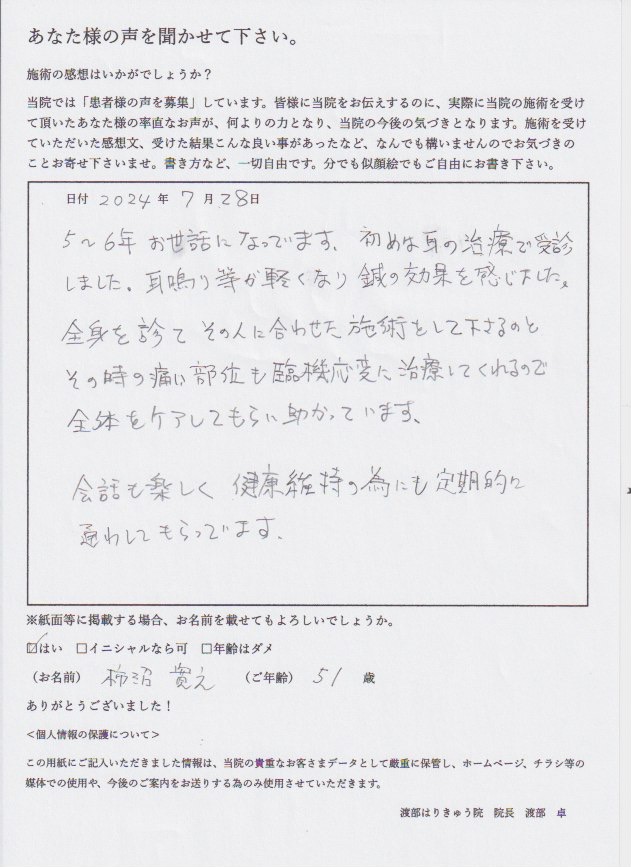 あなた様の声を聞かせて下さい。
施術の感想はいかがでしょうか？
当院では「患者様の声を募集」しています。皆様に当院をお伝えするのに、実際に当院の施術を受け
て頂いたあなた様の率直なお声が、何よりの力となり、当院の今後の気づきとなります。施術を受け
ていただいた感想文、受けた結果こんな良い事があったなど、なんでも構いませんのでお気づきの
ことお寄せ下さいませ。書き方など、一切自由です。分でも似顔絵でもご自由にお書き下さい。
日付 2024 年 7 月 28日
5〜6年 お世話になっています、初めは耳の治療で受診
しました。耳鳴り等が軽くなり 鍼の効果を感じました。
全身を診て その人に合わせた 施術をして下さるのと
その時の痛い部位も臨機応変に治療してくれるので
全体をケアしてもらい助かっています、
会話も楽しく 健康維持の為にも定期的に
通わしてもらっています、
※紙面等に掲載する場合、お名前を載せてもよろしいでしょうか。
☑はい □イニシャルなら可 □年齢はダメ
（お名前） 柿沼 寛之 （ご年齢） 51 歳
ありがとうございました！
<個人情報の保護について>
この用紙にご記入いただきました情報は、当院の貴重なお客さまデータとして厳重に保管し、ホームページ、チラシ等の
媒体での使用や、今後のご案内をお送りする為のみ使用させていただきます。
渡部はりきゅう院 院長 渡部 卓